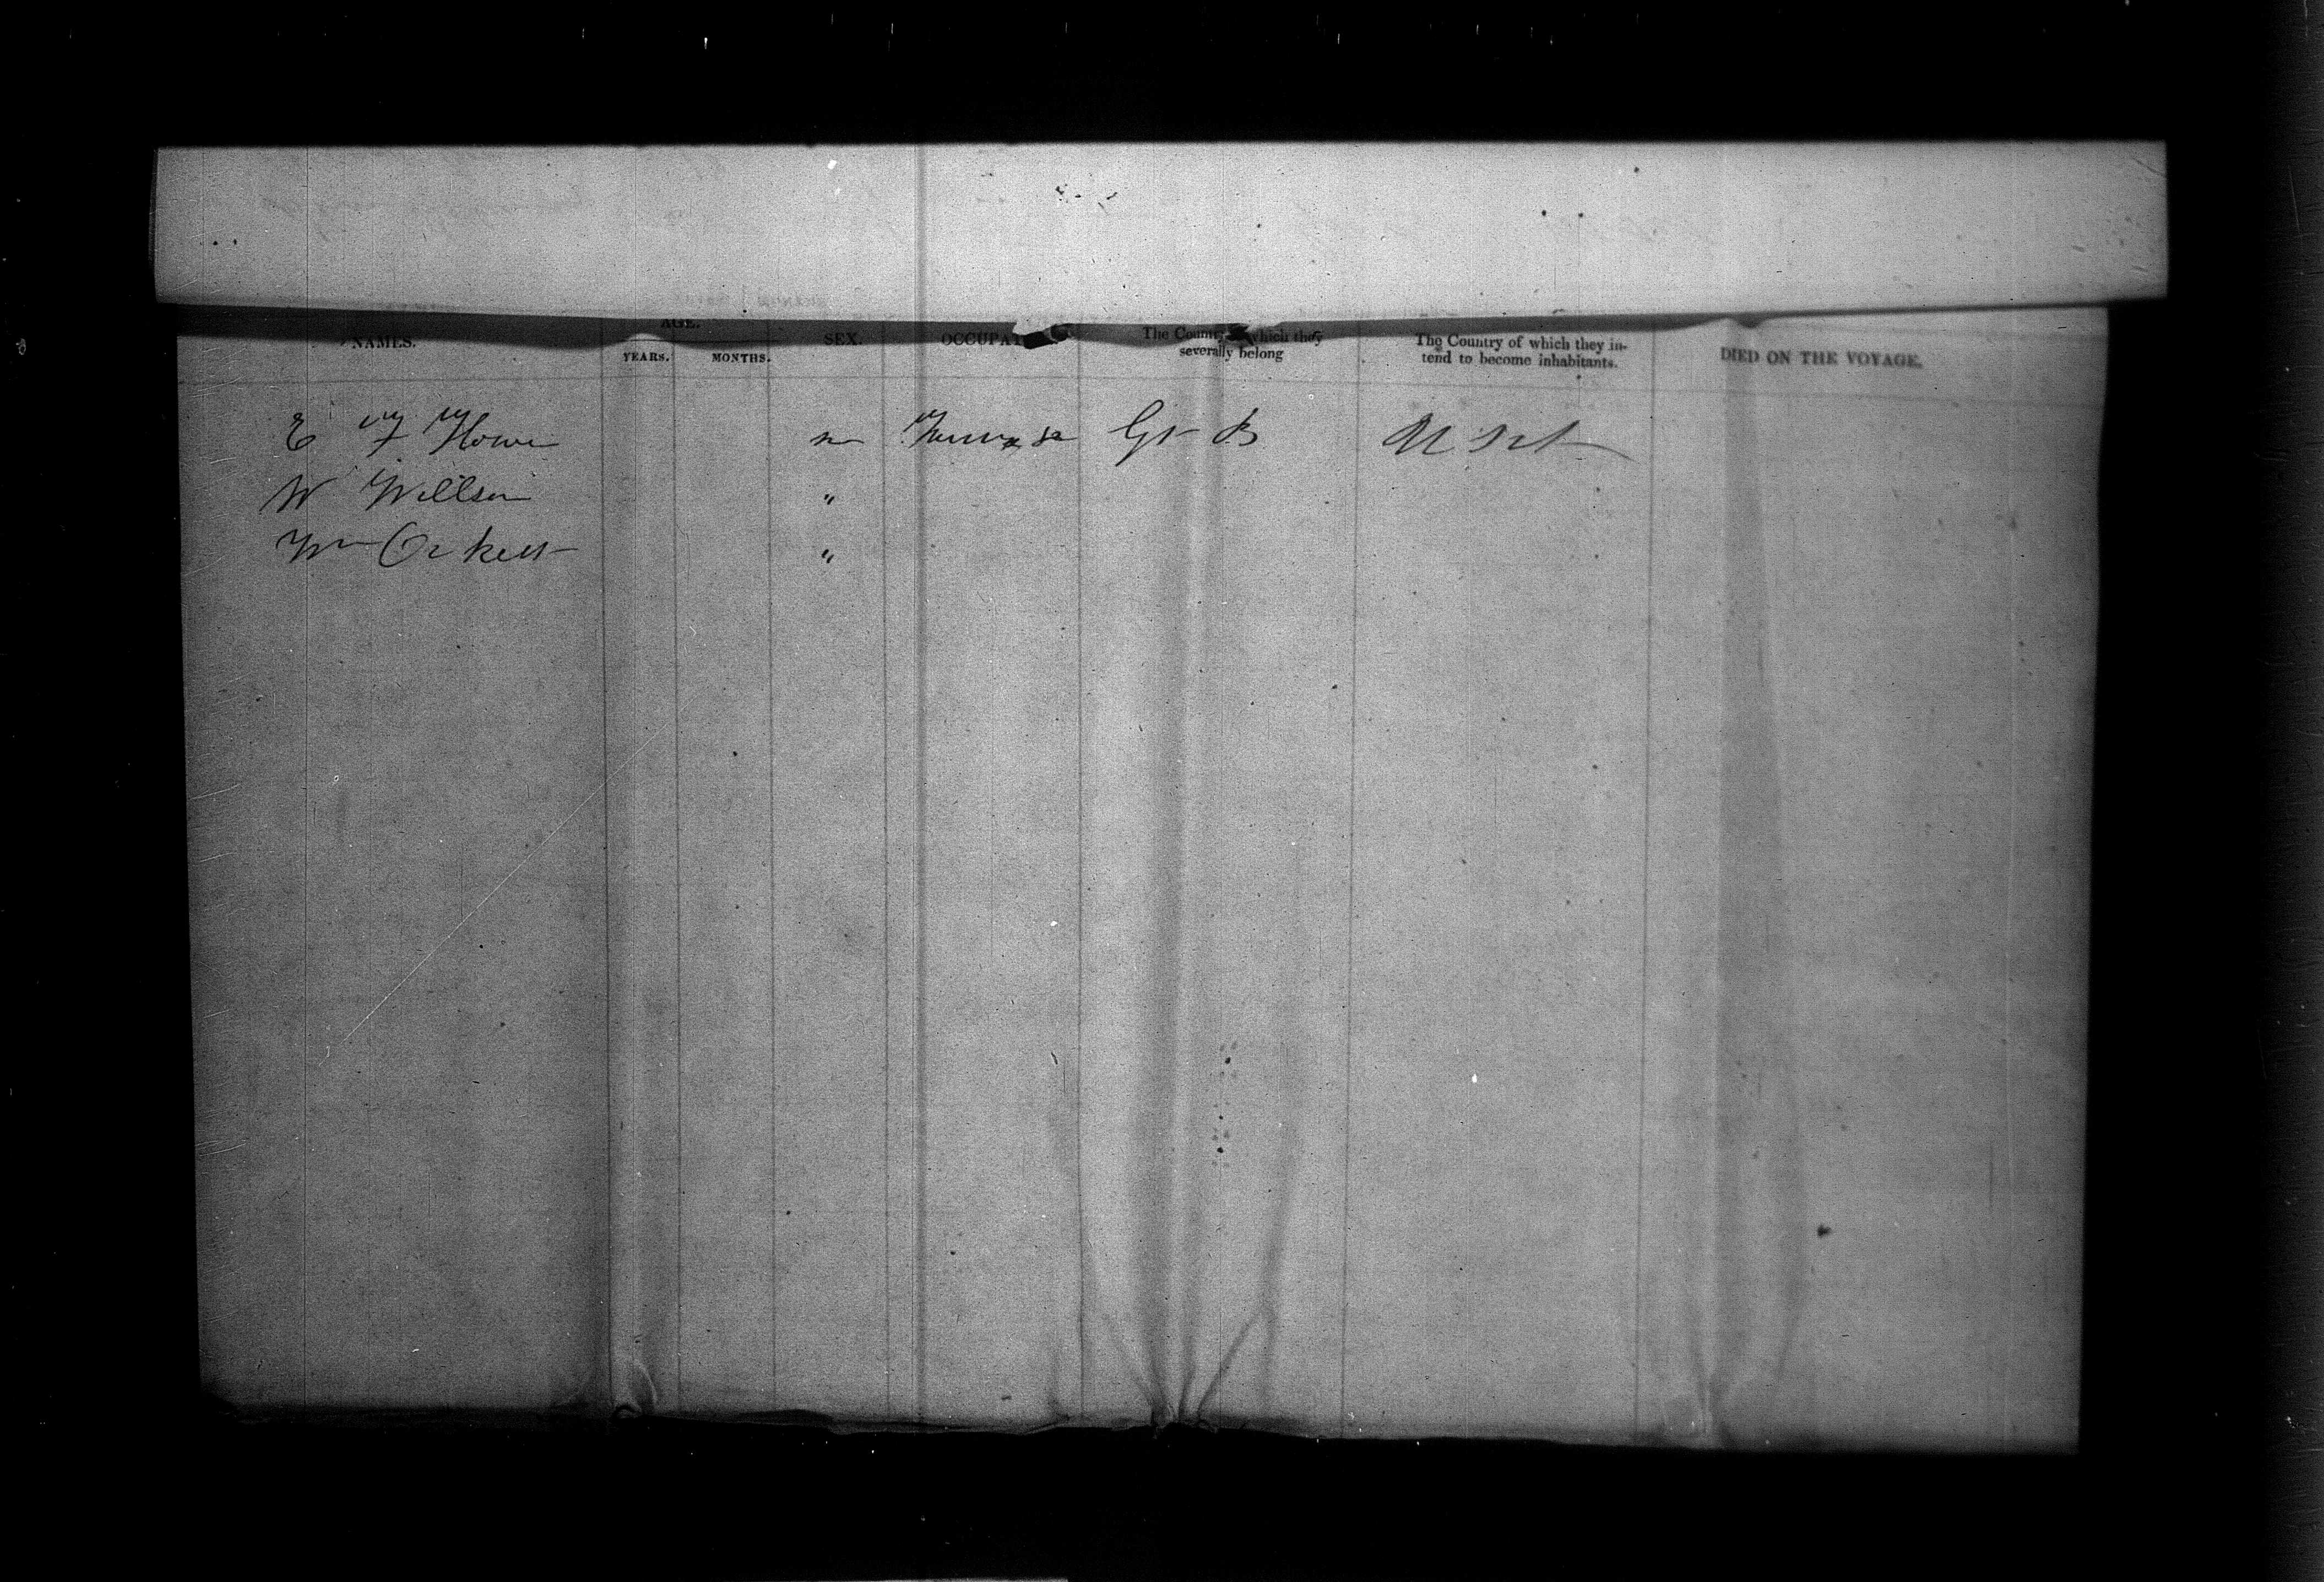 NAMES. AGE. YEARS. MONTHS. SEX. OCCUPAT The Country which they severally belong The Country of which they intend to become inhabitants. DIED ON THE VOYAGE.
E F Howe m Gt B
W Willson "
Wm "